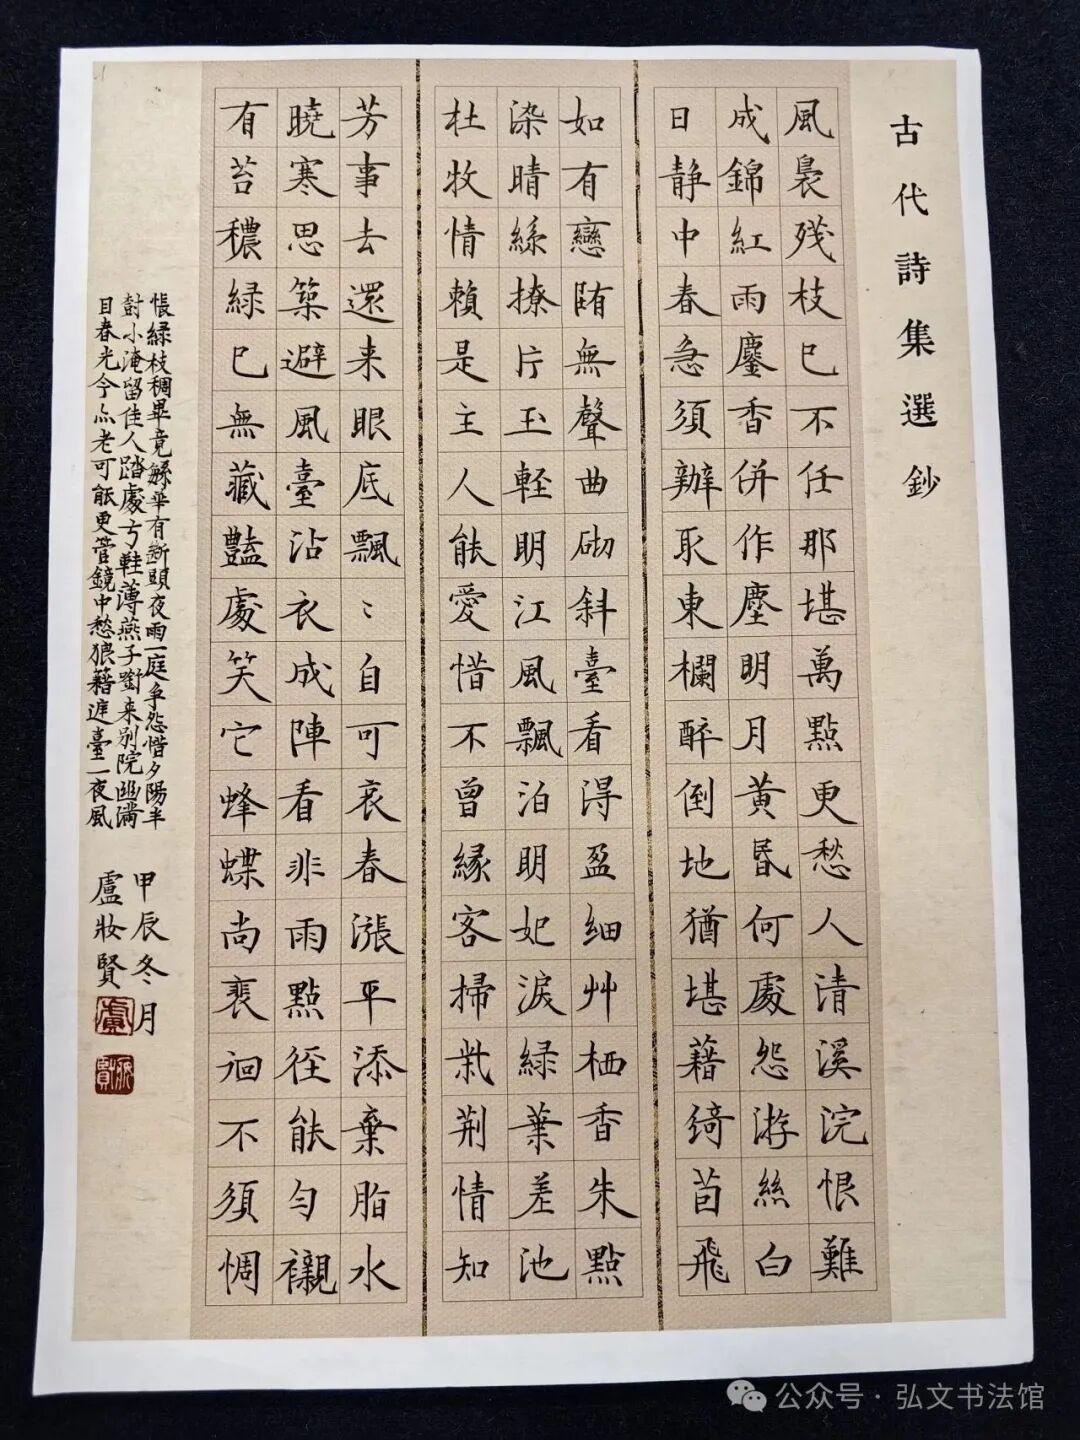 古代詩集選鈔
風裊殘枝已不任那堪萬點更愁人清溪浣恨難
成錦紅雨鏖香併作塵明月黃昏何處怨游絲白
日靜中春急須辦取東欄醉倒地猶堪藉綺茵飛
如有戀隋無聲曲砌斜臺看得盈細艸栖香朱點
染晴絲撩片玉輕明江風飄泊明妃淚綠葉差池
杜牧情賴是主人能愛惜不曾緣客掃柴荊情知
芳事去還来眼底飄〻自可哀春漲平添棄脂水
曉寒思築避風臺沾衣成陣看非雨點徑能勻襯
有苔穠綠已無藏豔處笑它蜂蝶尚裵徊不須惆
悵綠枝稠畢竟繁華有斷頭夜雨一庭爭怨惜夕陽半
封小淹留佳人踏處弓鞋薄燕子劉来別院幽滿
目春光今点老可能更管鏡中愁狼藉遮臺一夜風
甲辰冬月
盧妝賢
公众号·弘文书法馆